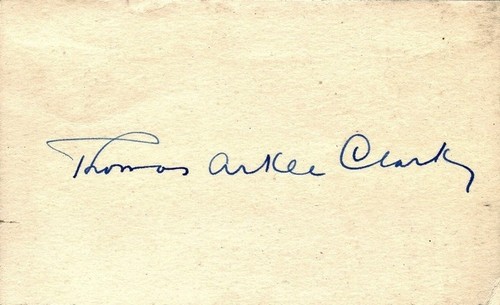 Thomas Arkle Clark